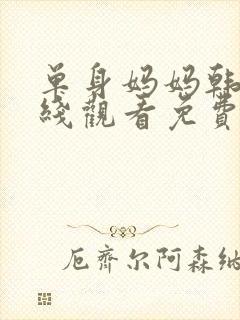 单身妈妈韩
线觀看免費
厄齊尔阿森纳